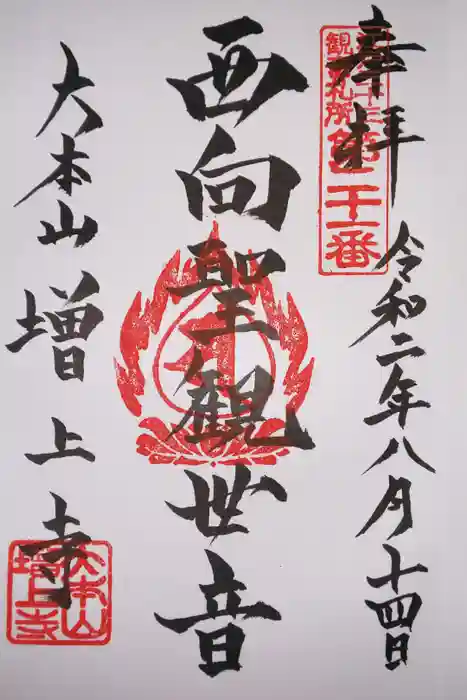 奉拝
令和二年八月十四日
西向聖観世音
大本山増上寺
第二十一番
大本山
増上寺